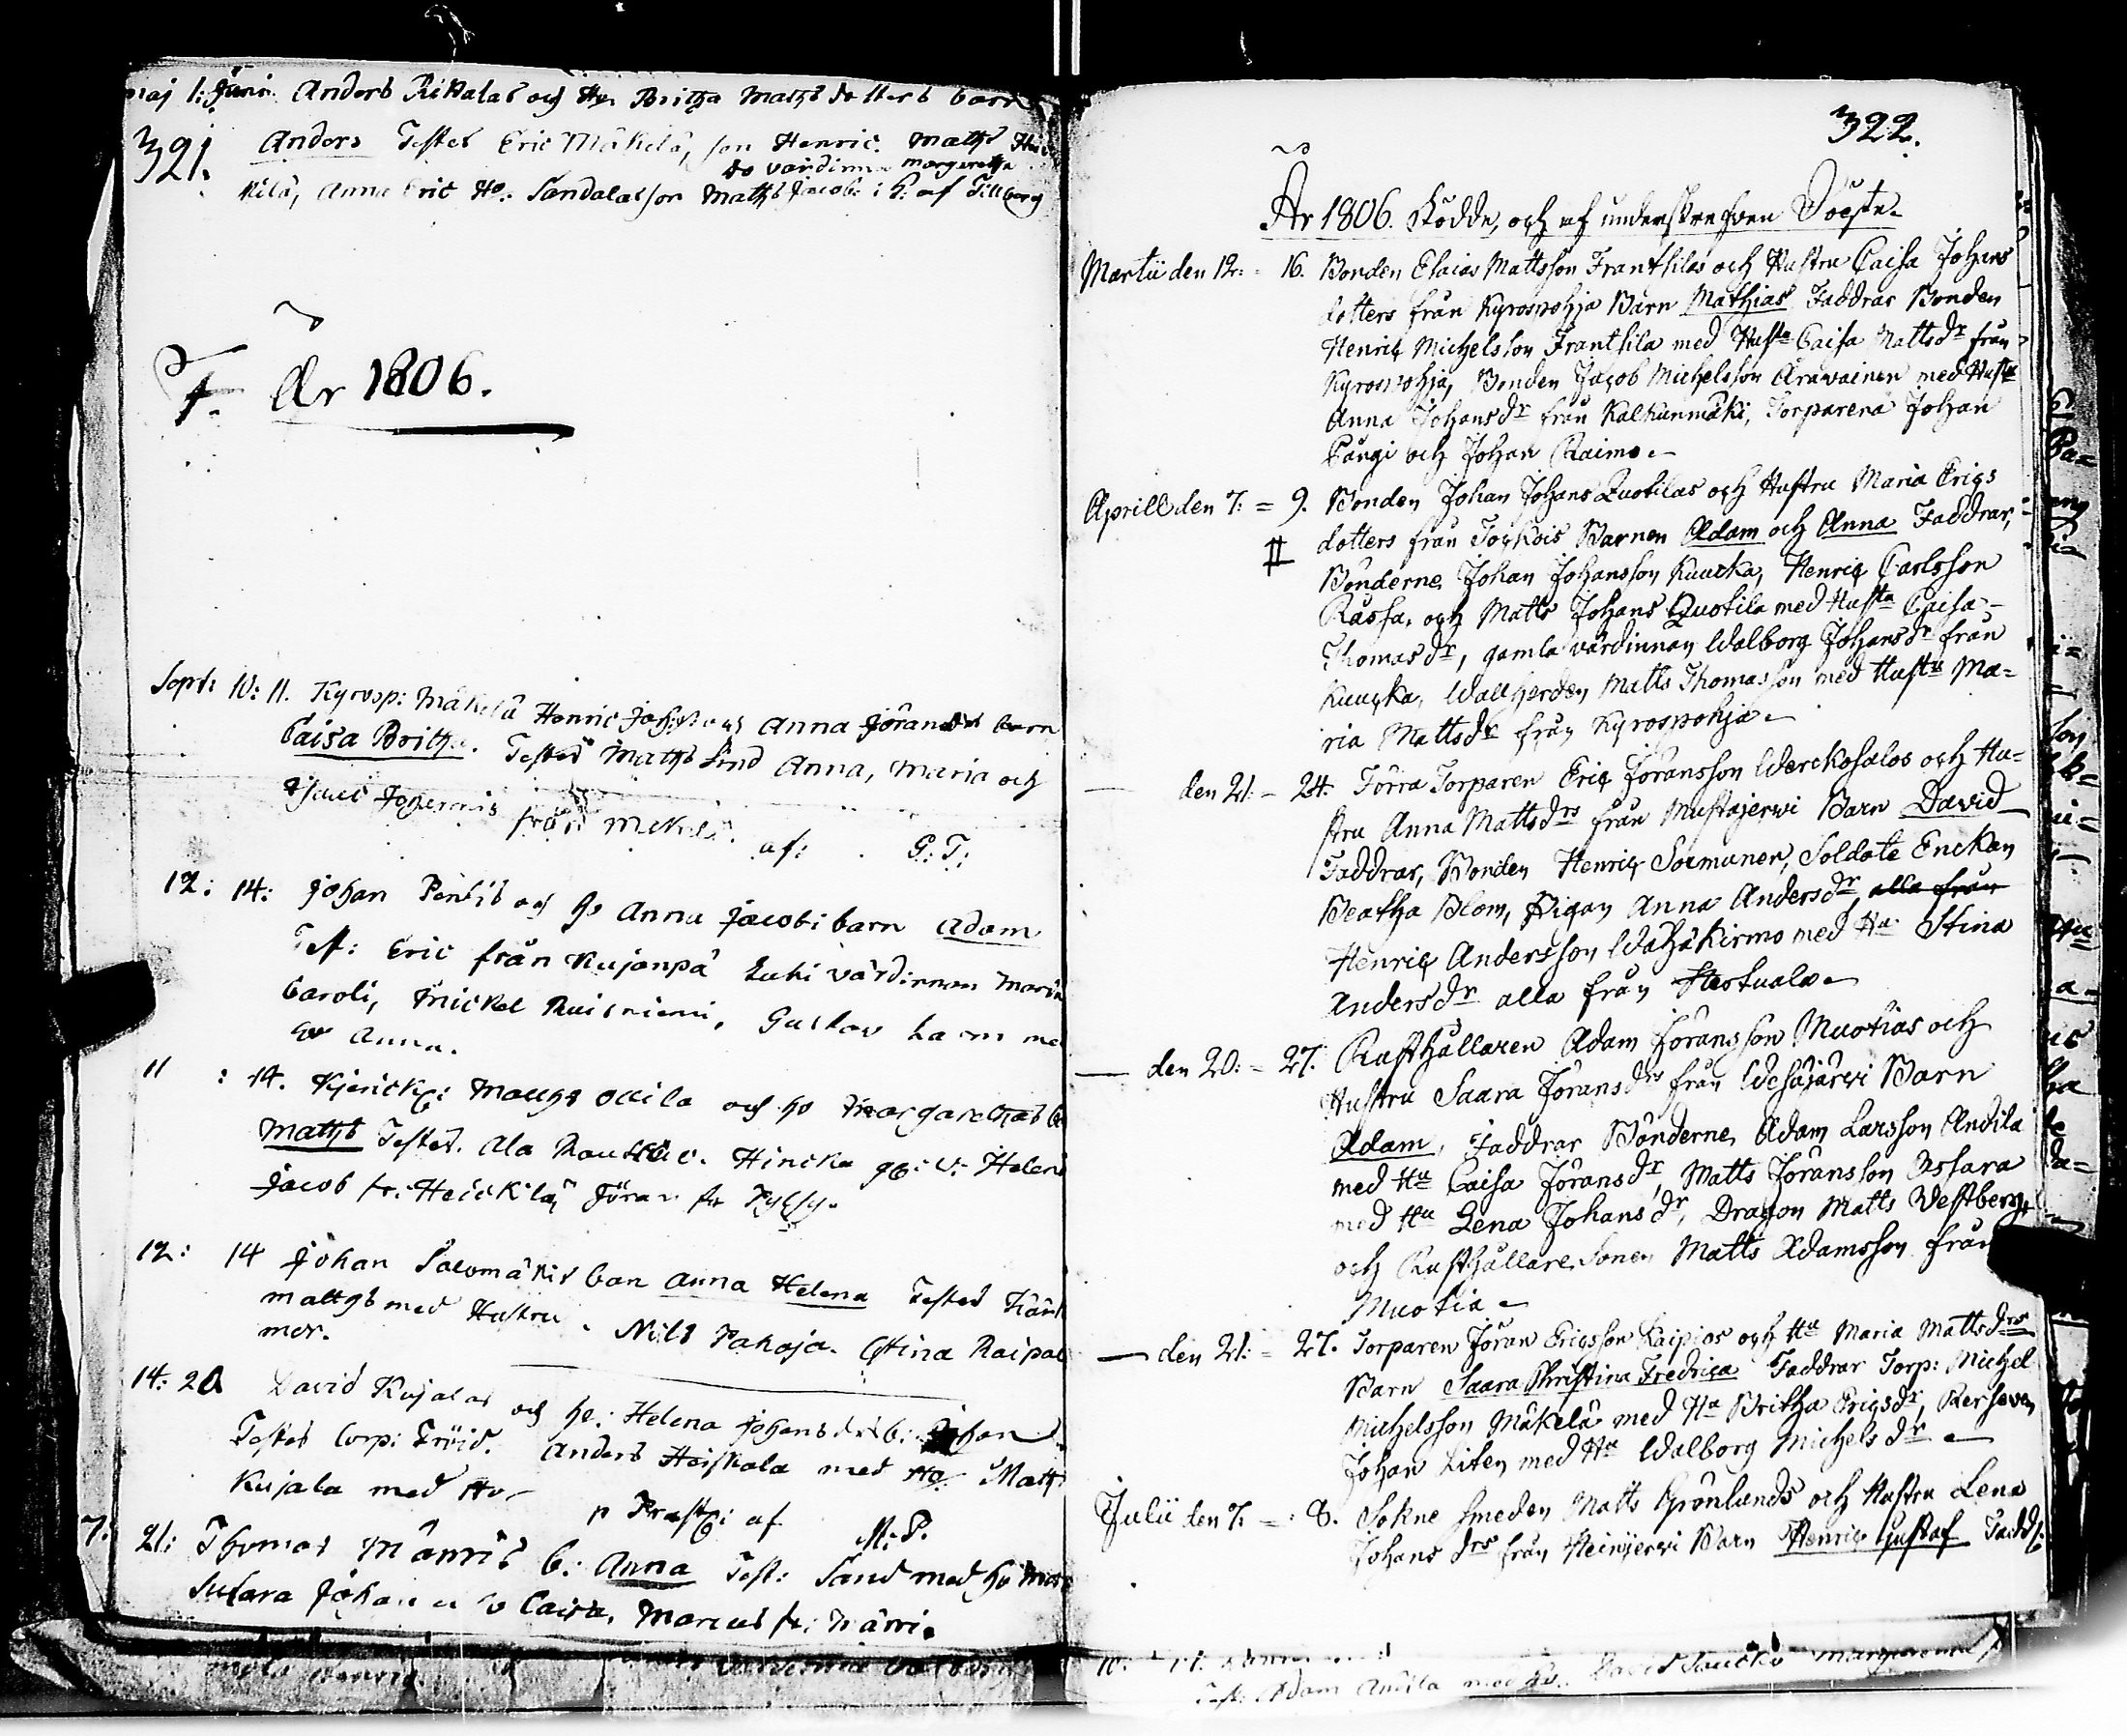 maj 1: Juni Anders Rikalas och Hu Britha Mathsdotters barn
321. Anders Testes Eric Mäkelä, son Henric. Maths
do värdinna margaretha
kilä, Anna Eric Ho: Sandalas son Maths Jacob: i G: af Tillberg
F. År 1806.
Sept: 10: 11. Kyrosp: Mäkelä Henric och Anna Jörans barn
Caisa Britha. Testes Maths Lind Anna, Maria och
från Mäkelä. af: G: T:
12: 14: Johan Pentis och ho Anna Jacobs barn Adam
Test: Eric från Kujanpä Luhi värdinnan Maria
Caroli, Mickel Ruisniemi, Gustav med
ho Anna.
11 : 14. Kjerick: Maths Ollila och ho Margarethas
Maths Testes. Ala Hincka Helena
Jacob fr: Heickilä Jöran fr
12: 14 Johan Salomäkis barn Anna Helena Testes
Matths med Hustru. Nils Pahaja. Stina
mor.
14: 20 David Kujalas och ho: Helena Johansdrs b: Johan
Testes Corp: Fröid. Anders Heiskala med Ho Maths
Kujala med Ho p af M: P.
7: 21: Thomas Männis b: Anna Test: Sand med ho
Susara Johan Caisa, Marcus fr: Männi.
322.
År 1806. Födde, och af underskrefven Döpte.
Martii den 12: = 16. Bonden Elaias Mattsson Frantsilas och Hustru Caisa Johans
dotters från Kyrospohja Barn Mathias Faddrar Bonden
Henric Michelsson Frantsila med Hust:a Caisa Mattsdr från
Kyrospohja, Bonden Jacob Michelsson Arawainen med Hust:u
Anna Johansdr från Kalkunmäki, Torparena Johan
Pängi och Johan Raimo.
Aprill den 7: = 9. Bonden Johan Johans Quotilas och Hustru Maria Erics
# dotters från Tockois Barnen Adam och Anna Faddrar,
Bönderne Johan Johansson Kuucka, Henric Carlsson
Rassa, och Matts Johans Quotila med Hust:a Caisa
Thomasdr, gamla värdinnan Walborg Johansdr från
Kuucka, Wallherden Matts Thomasson med Hust:u Ma=
ria Mattsdr från Kyrospohja.
den 21: = 24. Förra Torparen Eric Jöransson Werckosalos och Hu=
stru Anna Mattsdrs från Mustajerwi Barn David
Faddrar, Bonden Henric Sormunen, Soldate Enckan
Beatha Blom, Pigan Anna Andersdr, alla från
Henric Andersson Wähäkirmo med Hu Stina
Andersdr alla från Hertuala.
den 20: = 27. Rusthållaren Adam Jöransson Muotias och
Hustru Saara Jöransdrs från Wesajärwi Barn
Adam, Faddrar Bönderne, Adam Larsson Andila
med Hu Caisa Jöransdr, Matts Jöransson Ossara
med Hu Lena Johansdr, Dragon Matts Westberg,
och Rusthållare Sonen Matts Adamsson från
Muotia.
den 21: = 27. Torparen Jöran Ericsson Kaipios och Hu Maria Mattsdrs
Barn Saara Christina Fredrica Faddrar Torp: Michel
Michelsson Mäkelä med Hu Britha Ericsdr, Reserven
Johan Liten med Hu Walborg Michelsdr.
Julii den 7: = 8. Sokne Smeden Matts Grönlunds och Hustru Lena
Johansdrs från Heinijerwi Barn Henric Gustaf Fadd:
Test: Adam Andila med ho. David